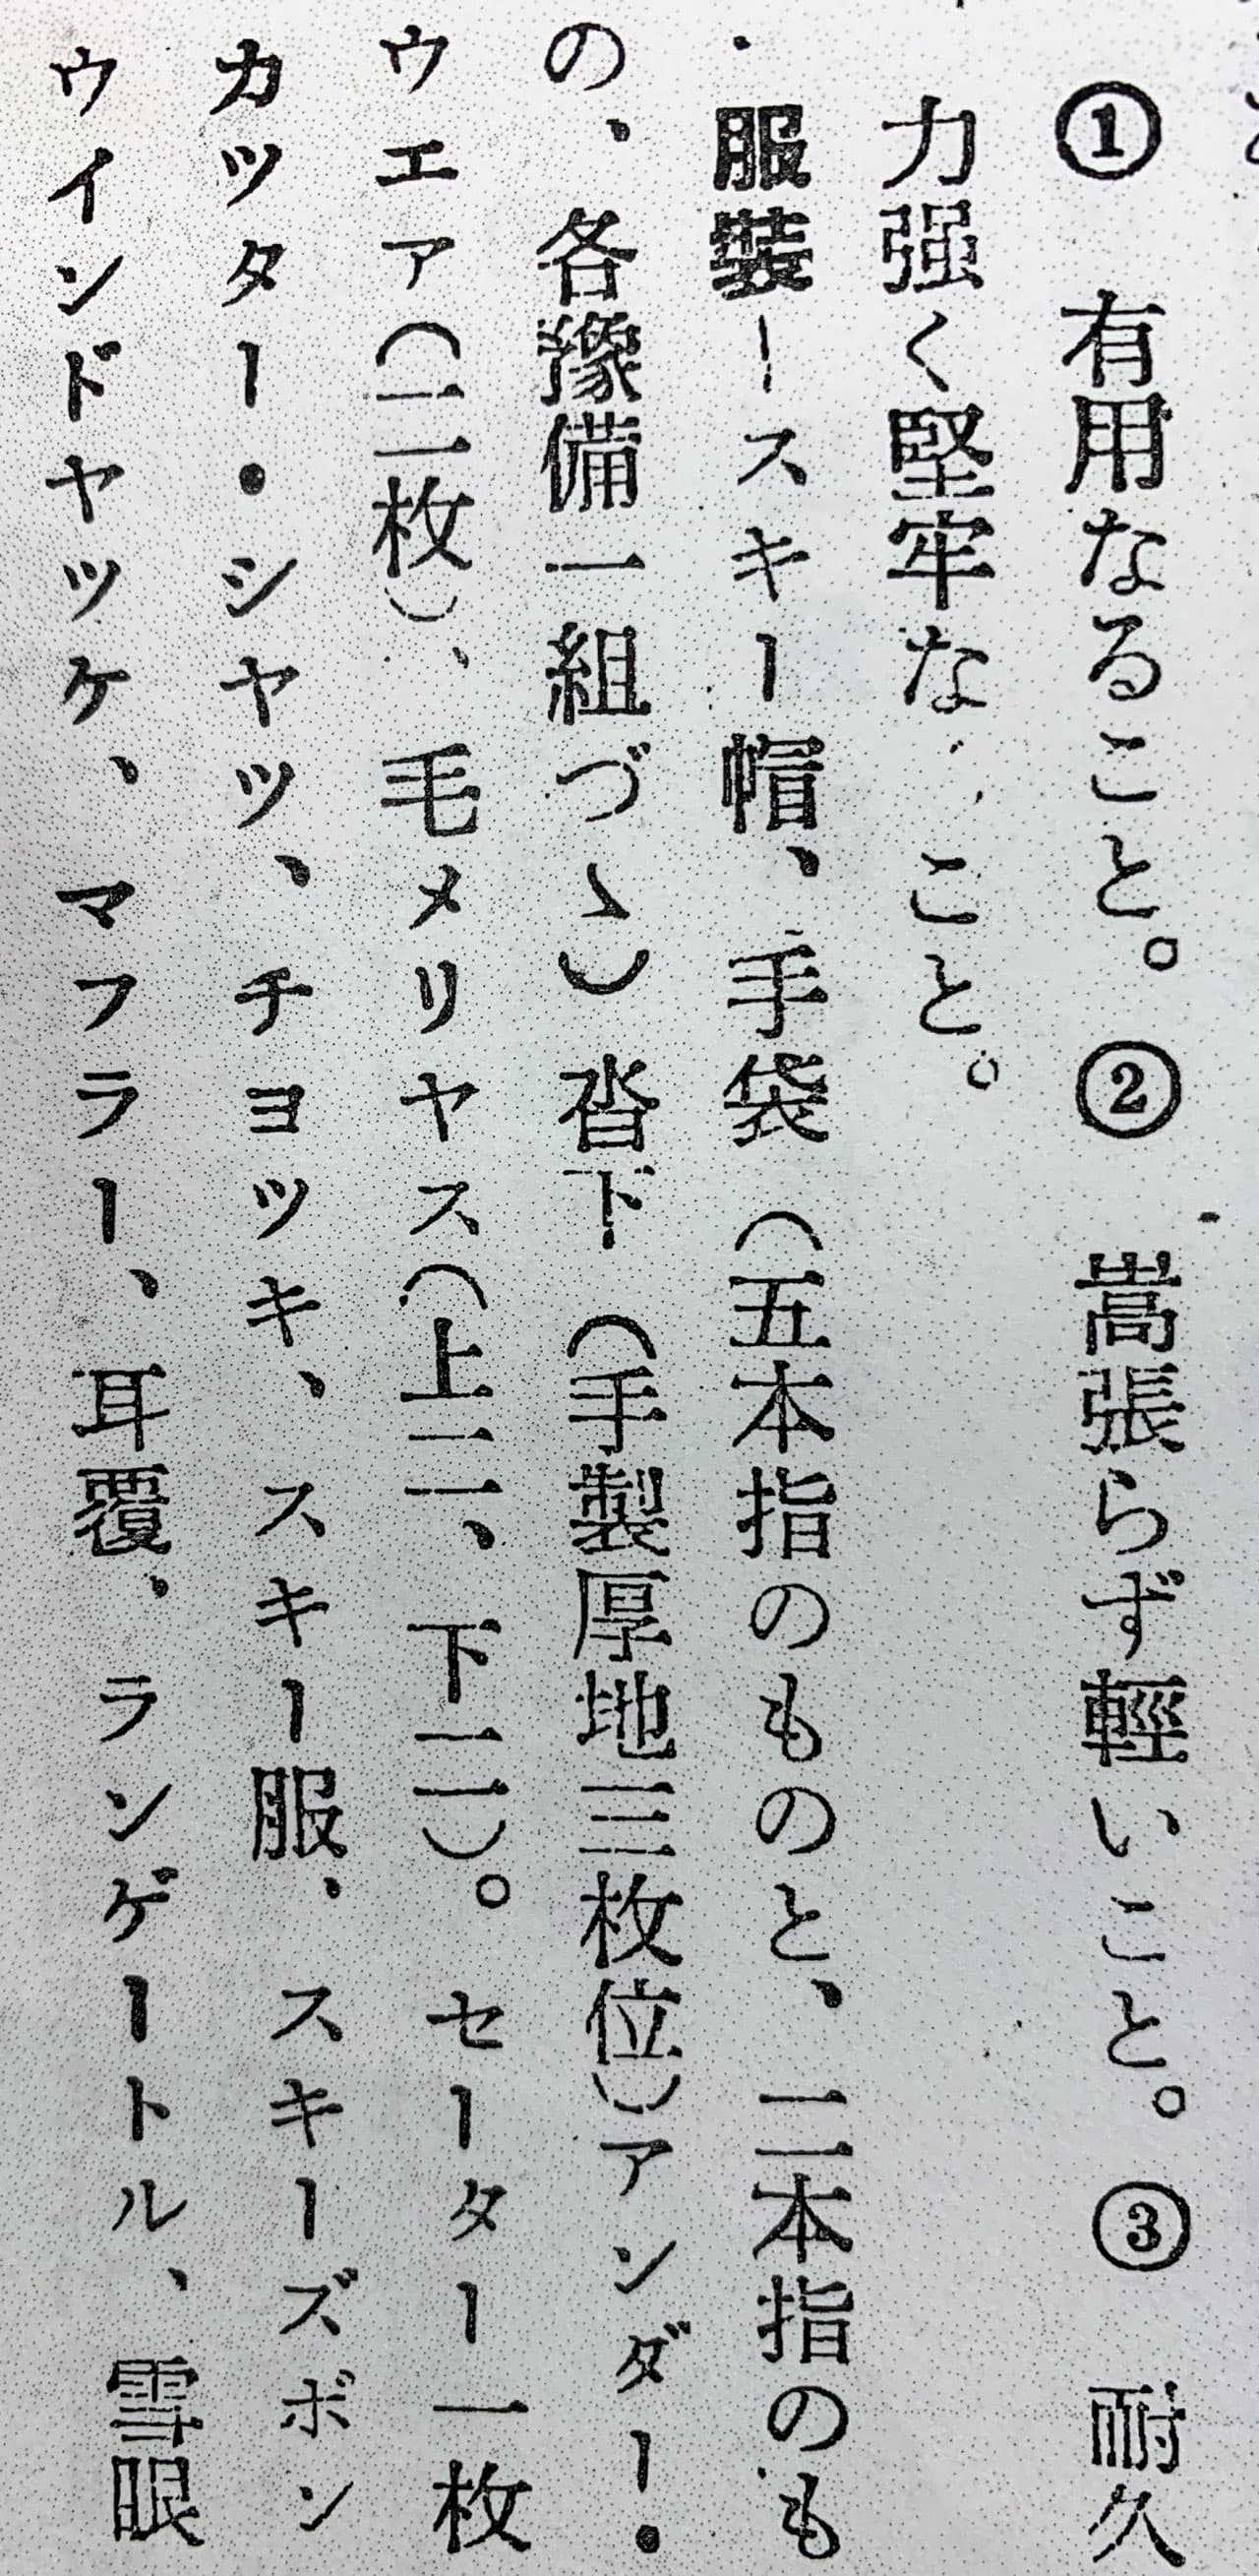 ① 有用なること。② 嵩張らず輕いこと。③ 耐久
力强く堅牢なこと。
服裝ースキー帽、手袋（五本指のものと、二本指のも
の、各豫備一組づゝ）沓下（手製厚地三枚位）アンダー・
ウエア（二枚）、毛メリヤス（上二、下二）。セーター一枚
カツター・シヤツ、チヨツキ、スキー服、スキーズボン
ウインドヤツケ、マフラー、耳覆、ランゲートル、雪眼